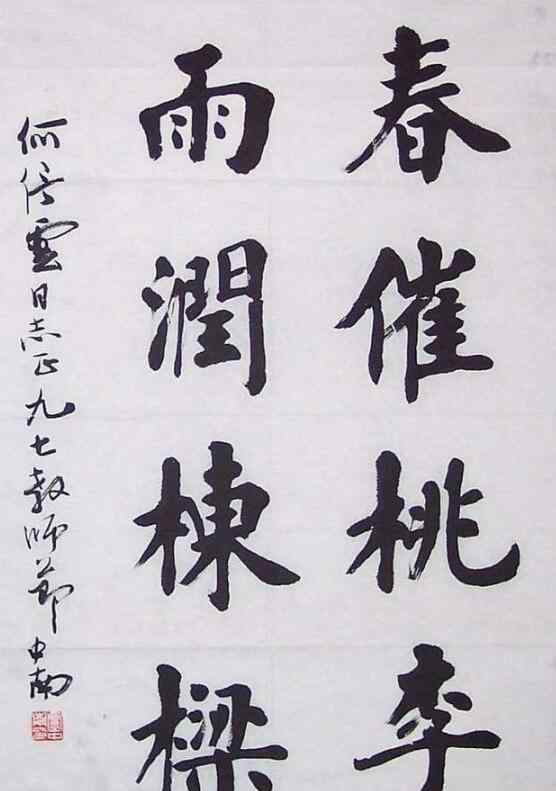 春催桃李
雨潤棟樑
何倍雲同志正九七教師節中南